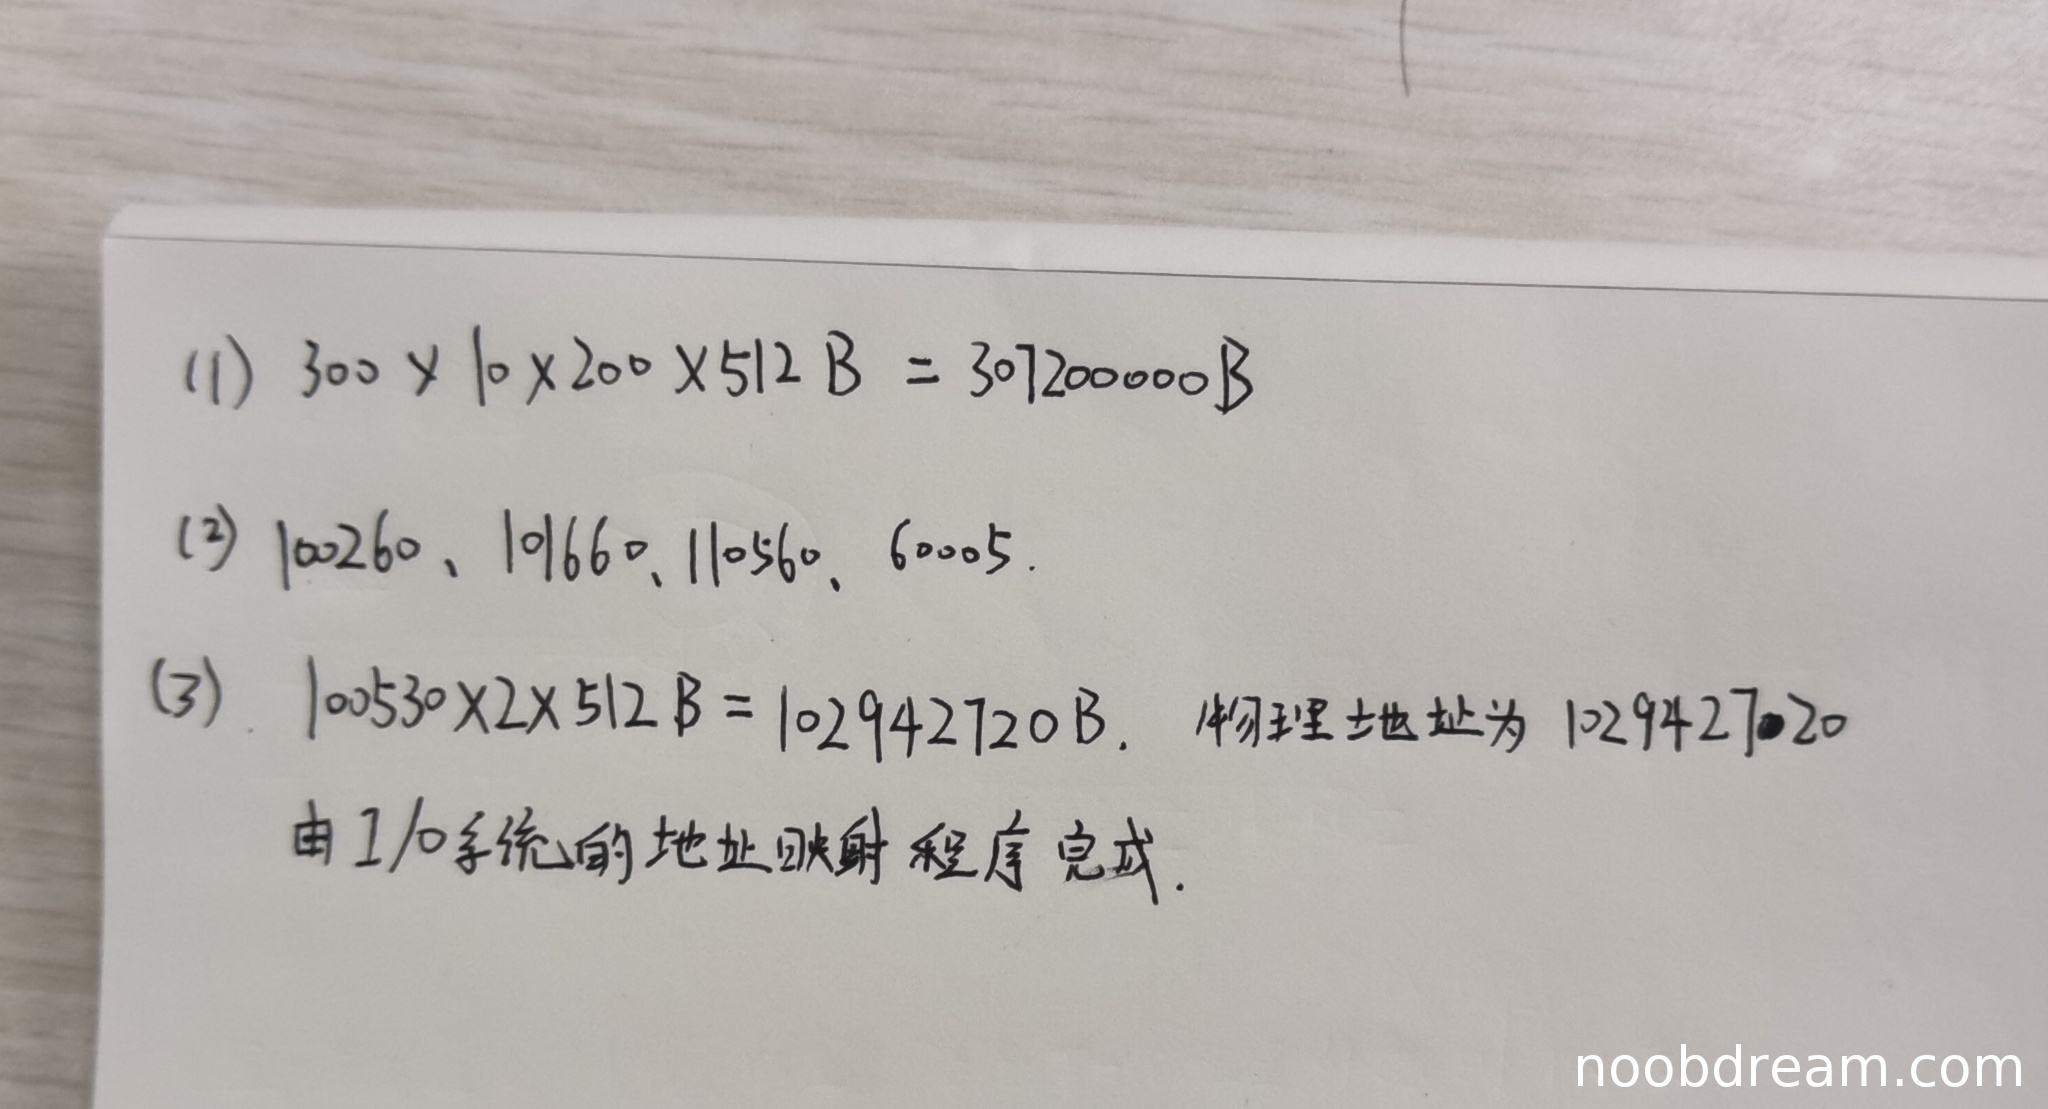 (1) 300 × 10 × 200 × 512 B = 307200000B
(2) 100260、101660、110560、60005.
(3). 100530×2×512 B = 102942720B. 物理地址为 102942720
由I/O系统的地址映射程序完成.
noobdream.com